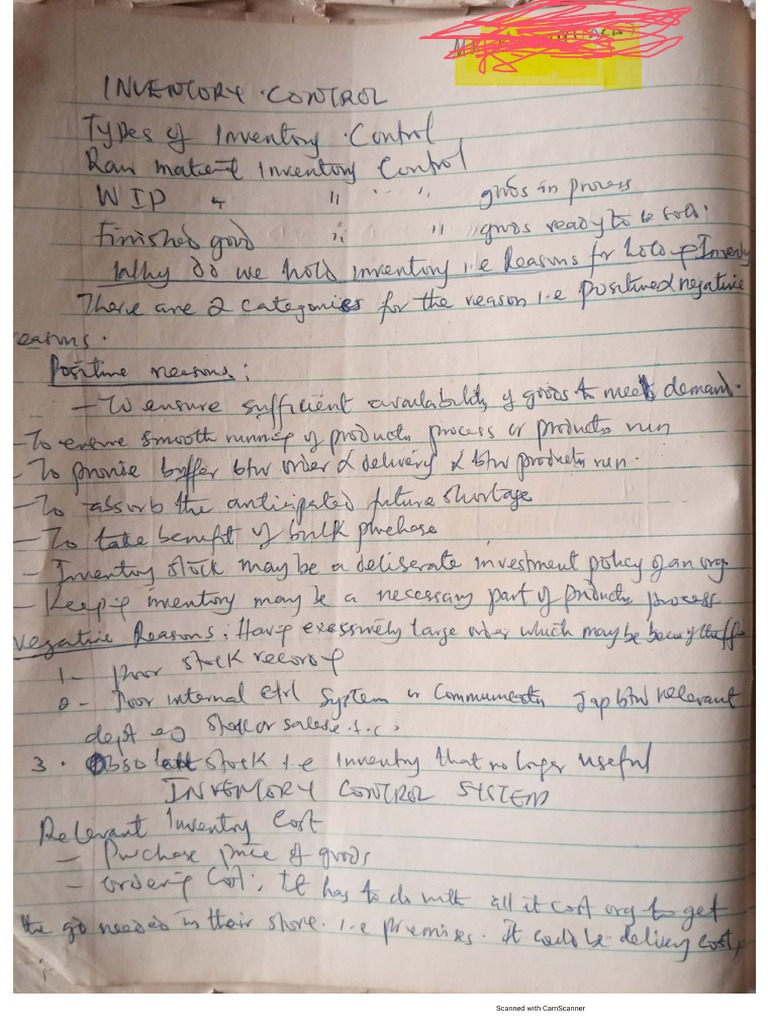 INVENTORY CONTROL
Types of Inventory Control
Raw material Inventory Control
WIP " " " " goods in process
Finished good " " " goods ready to be sold.
Why do we hold inventory i.e Reasons for holdg Inventy
There are 2 categories for the reason i.e positive & negative
reasons.
Positive reasons:
- To ensure sufficient availability of goods to meet demand.
- To ensure smooth running of productn process or productn run
- To provise buffer btw order & delivery & btw productn run.
- To absorb the anticipated future shortage
- To take benefit of bulk purchase
- Inventory stock may be a deliberate investment policy of an org
- Keepig inventory may be a necessary part of productn process
Negative Reasons: Having excessively large order which may be becos of the ff
1- Poor stock recordg
2- Poor internal ctrl system or Communicatn gap btw relevant
dept eg stock or sales e.t.c.
3. Obsolett stock i.e Inventry that no longer useful
INVENTORY CONTROL SYSTEM
Relevant Inventory Cost
- Purchase price of goods
- Ordering Cost; It has to do with all it cost org to get
the gd needed in their store. i.e premises. it could be delivery cost,
Scanned with CamScanner